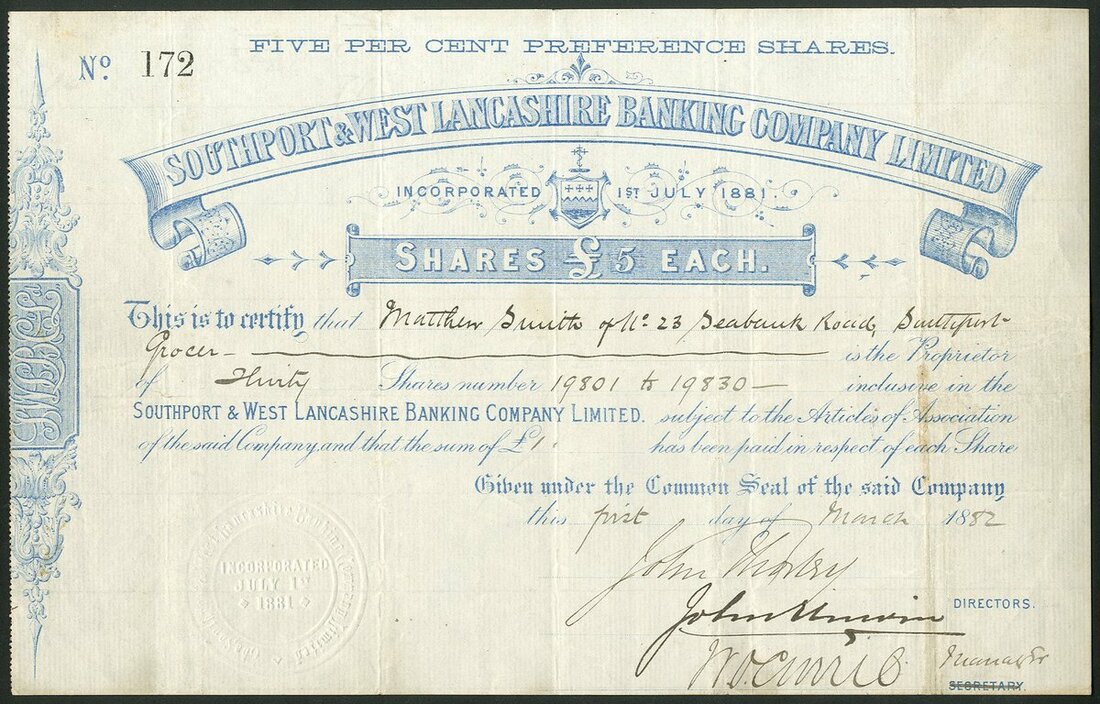 FIVE PER CENT PREFERENCE SHARES.
No. 172
SOUTHPORT & WEST LANCASHIRE BANKING COMPANY LIMITED
INCORPORATED 1ST JULY 1881.
SHARES £5 EACH.
This is to certify that Matthew Smith of No. 23 Seabank Road, Southport
Grocer is the Proprietor
of Thirty Shares number 19801 to 19830 inclusive in the
SOUTHPORT & WEST LANCASHIRE BANKING COMPANY LIMITED. subject to the Articles of Association
of the said Company and that the sum of £1. has been paid in respect of each Share
Given under the Common Seal of the said Company
this first day of March 1882
John
John Unwin
DIRECTORS.
Manager
SECRETARY.
INCORPORATED
JULY 1ST
1881